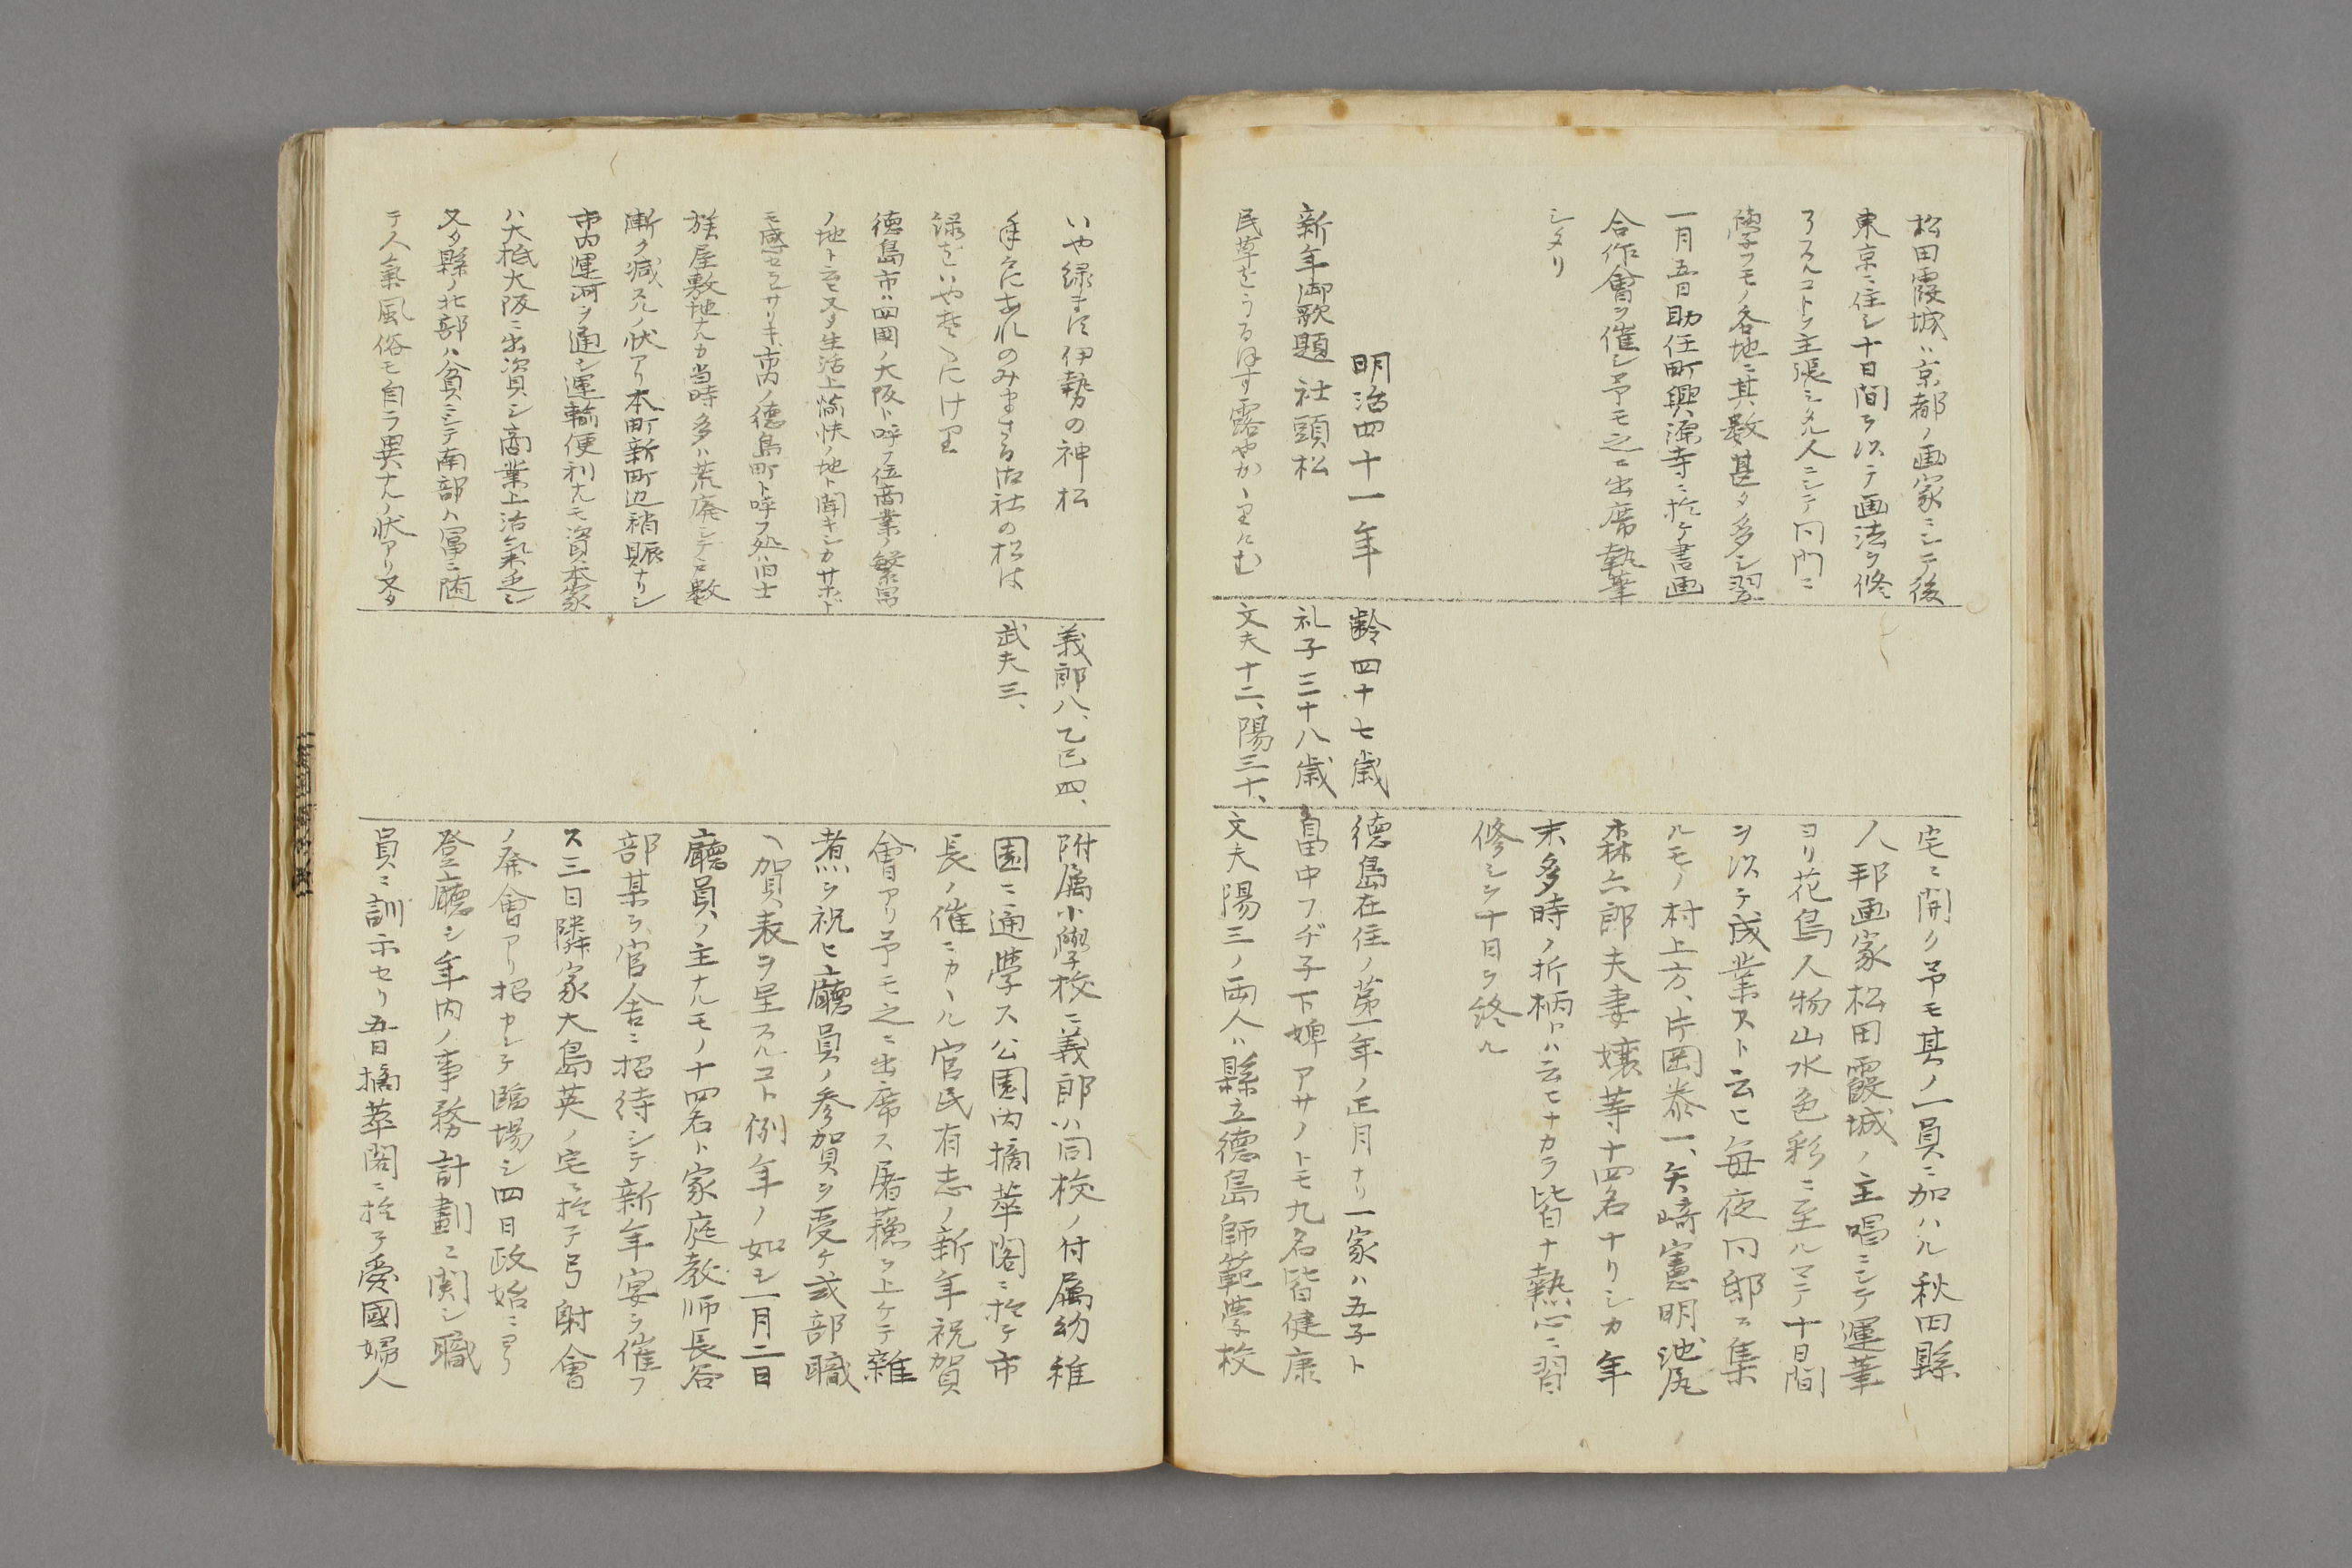 松田霞城ハ京都ノ画家ニシテ後
東京ニ住シ十日間ヲ以テ画法ヲ修
了スルコトヲ主張シタル人ニシテ同門ニ
學フモノ各地ニ其数甚タ多シ翌
一月五日助任町興源寺ニ於ケ書画
合作會ヲ催シ予モ之ニ出席執筆
シタリ
宅ニ開ク予モ其ノ一員ニ加ハル秋田縣
人邦画家松田霞城ノ主唱ニシテ運筆
ヨリ花鳥人物山水色彩ニ至ルマテ十日間
ヲ以テ成業スト云ヒ毎夜同邸ニ集
ルモノ村上方、片岡泰一、矢崎憲明池尻
森六郎夫妻嬢等十四名ナリシカ年
末多時ノ折柄トハ云ヒナカラ皆ナ熱心ニ習
修シシ十日ヲ終ル
明治四十一年
新年御歌題 社頭松
民草をうるほす露や
齢四十七歳
礼子三十八歳
文夫十二、陽三十、
徳島在住ノ第一年ノ正月ナリ一家ハ五子ト
畠中フヂ子下婢アサノトモ九名皆健康
文夫陽三ノ両人ハ縣立徳島師範學校
いや緑ます伊勢の神松
年々にあれのみまさる御社の松は
緑をいや
徳島市ハ四國ノ大阪ト呼フ位商業ノ繁昌
ノ地ト云ヒ又タ生活上愉快ノ地ト聞キシカサホド
モ感セラレサリキ、市内ノ徳島町ト呼フ処ハ旧士
族屋敷地ナルカ当時多ハ荒廃シテ戸数
漸ク減スルノ状アリ本町新町辺稍賑ナリシ
市内運河ヲ通シ運輸便利ナルモ資本家
ハ大柢大阪ニ出資シ商業上活氣乏シ
又タ縣ノ北部ハ貧ニシテ南部ハ冨ニ随
テ人氣風俗モ自ラ異ナルノ状アリ又タ
義郎八、乙巳四、
武夫三、
附属小學校ニ義郎ハ同校ノ付属幼稚
園ニ通學ス公園内摘萃閣ニ於テ市
長ノ催ニカヽル官民有志ノ新年祝賀
會アリ予モ之ニ出席ス屠蘓ヲ上ケテ雜
煮ヲ祝ヒ廳員ノ参賀ヲ受ケ式部職
ヘ賀表ヲ呈スルコト例年ノ如シ一月二日
廳員ノ主ナルモノ十四名ト家庭教师長谷
部某ヲ官舎ニ招待シテ新年宴ヲ催フ
ス三日隣家大島英ノ宅ニ於テ弓射會
ノ発會アリ招カレテ臨場シ四日政始ニヨリ
登廳シ年内ノ事務計劃ニ関シ職
員ニ訓示セリ五日摘萃閣ニ於テ愛國婦人